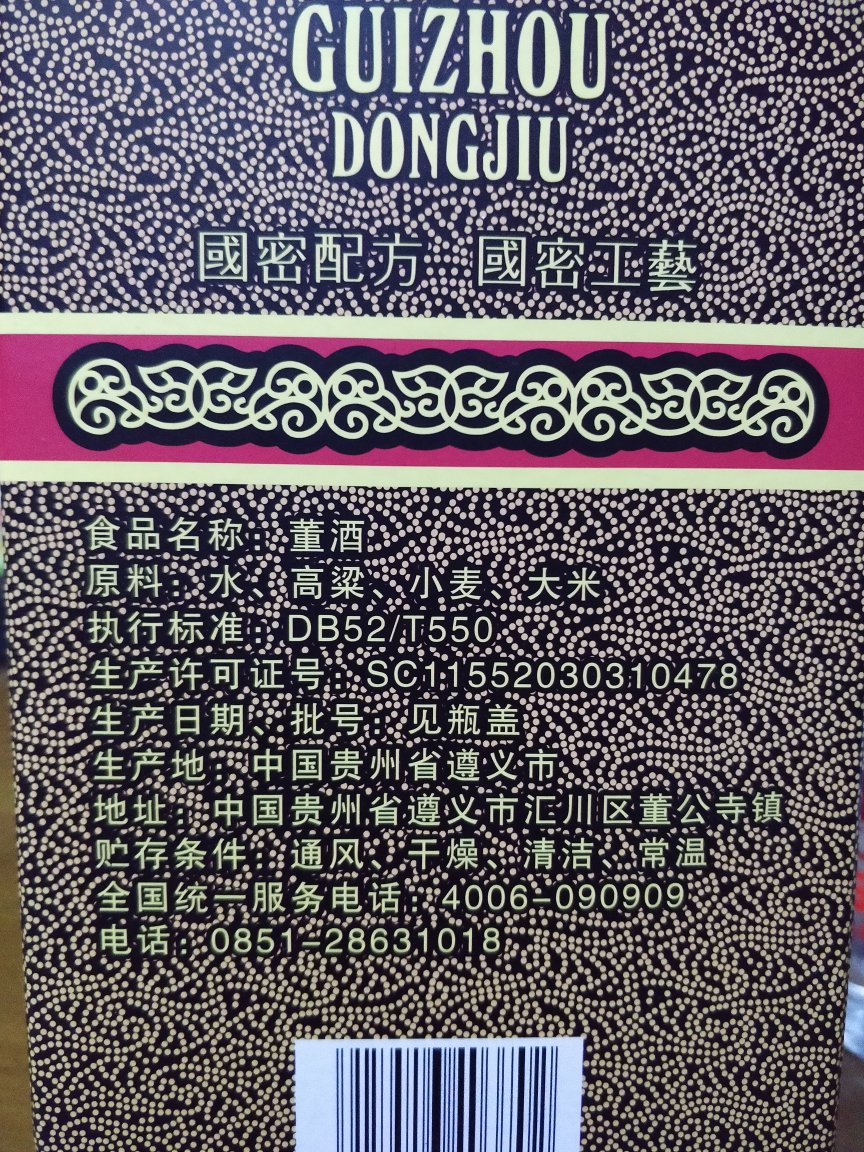 GUIZHOU
DONGJIU
國密配方 國密工藝
食品名称：董酒
原料：水、高粱、小麦、大米
执行标准：DB52/T550
生产许可证号：SC11552030310478
生产日期、批号：见瓶盖
生产地：中国贵州省遵义市
地址：中国贵州省遵义市汇川区董公寺镇
贮存条件：通风、干燥、清洁、常温
全国统一服务电话：4006-090909
电话：0851-28631018